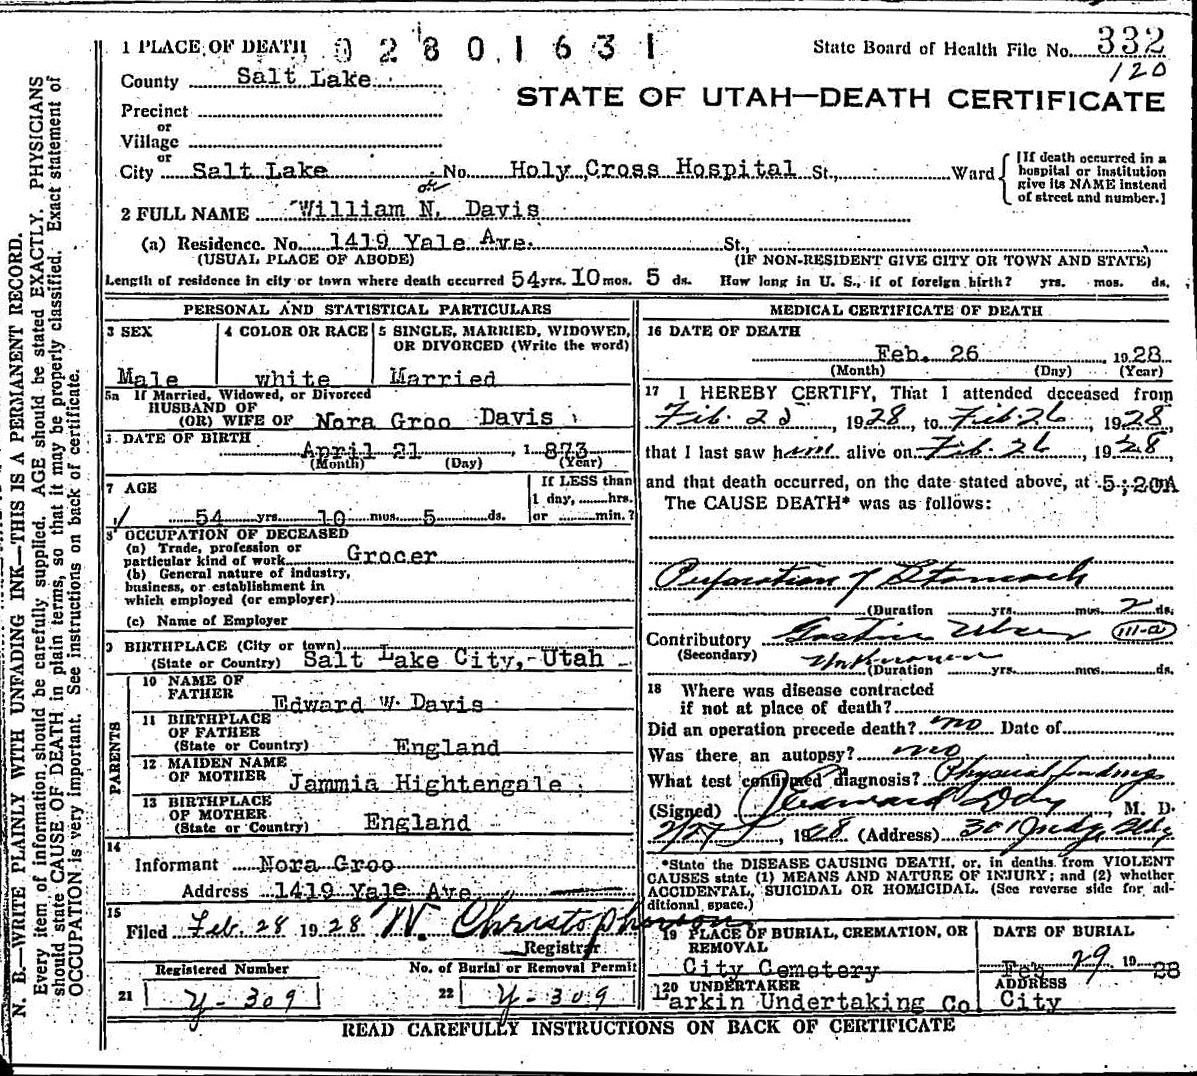 1 PLACE OF DEATH 02801631 State Board of Health File No. 332
120
County Salt Lake
STATE OF UTAH—DEATH CERTIFICATE
Precinct
or
Village
or
City Salt Lake No. Holy Cross Hospital St., Ward [If death occurred in a hospital or institution give its NAME instead of street and number.]
2 FULL NAME William N. Davis
(a) Residence. No. 1419 Yale Ave. St.,
(USUAL PLACE OF ABODE) (IF NON-RESIDENT GIVE CITY OR TOWN AND STATE)
Length of residence in city or town where death occurred 54 yrs. 10 mos. 5 ds. How long in U. S., if of foreign birth? yrs. mos. ds.
PERSONAL AND STATISTICAL PARTICULARS
3 SEX
Male
4 COLOR OR RACE
white
5 SINGLE, MARRIED, WIDOWED, OR DIVORCED (Write the word)
Married
5a If Married, Widowed, or Divorced
HUSBAND OF
(OR) WIFE OF Nora Groo Davis
DATE OF BIRTH
April 21, 1873
(Month) (Day) (Year)
7 AGE
54 yrs. 10 mos. 5 ds.
If LESS than
1 day, hrs.
or min.?
8 OCCUPATION OF DECEASED
(a) Trade, profession or
particular kind of work Grocer
(b) General nature of industry,
business, or establishment in
which employed (or employer)
(c) Name of Employer
9 BIRTHPLACE (City or town)
(State or Country) Salt Lake City, Utah
PARENTS
10 NAME OF
FATHER Edward W. Davis
11 BIRTHPLACE
OF FATHER
(State or Country) England
12 MAIDEN NAME
OF MOTHER Jammia Hightengale
13 BIRTHPLACE
OF MOTHER
(State or Country) England
14
Informant Nora Groo
Address 1419 Yale Ave
15
Filed Feb. 28 1928 W. Christopherson
Registrar
Registered Number
21 Y-309
No. of Burial or Removal Permit
22 Y-309
MEDICAL CERTIFICATE OF DEATH
16 DATE OF DEATH
Feb. 26 1928
(Month) (Day) (Year)
17 I HEREBY CERTIFY, That I attended deceased from
Feb. 1928, to Feb 26, 1928,
that I last saw him alive on Feb. 26, 1928,
and that death occurred, on the date stated above, at 5:20A
The CAUSE DEATH* was as follows:
Perforation of Stomach
(Duration yrs. mos. 2 ds.
Contributory Gastric Ulcer III-a
(Secondary) Unknown
(Duration yrs. mos. ds.
18 Where was disease contracted
if not at place of death?
Did an operation precede death? no Date of
Was there an autopsy? no
What test confirmed diagnosis? Physical findings
(Signed) Day, M. D.
2/27, 1928 (Address) 301 Judge Bldg
*State the DISEASE CAUSING DEATH, or, in deaths from VIOLENT
CAUSES state (1) MEANS AND NATURE OF INJURY; and (2) whether
ACCIDENTAL, SUICIDAL OR HOMICIDAL. (See reverse side for ad-
ditional space.)
19 PLACE OF BURIAL, CREMATION, OR
REMOVAL
City Cemetery
DATE OF BURIAL
Feb 29 1928
20 UNDERTAKER
Larkin Undertaking Co.
ADDRESS
City
READ CAREFULLY INSTRUCTIONS ON BACK OF CERTIFICATE
N. B.—WRITE PLAINLY WITH UNFADING INK—THIS IS A PERMANENT RECORD.
Every item of information should be carefully supplied. AGE should be stated EXACTLY. PHYSICIANS
should state CAUSE OF DEATH in plain terms, so that it may be properly classified. Exact statement of
OCCUPATION is very important. See instructions on back of certificate.